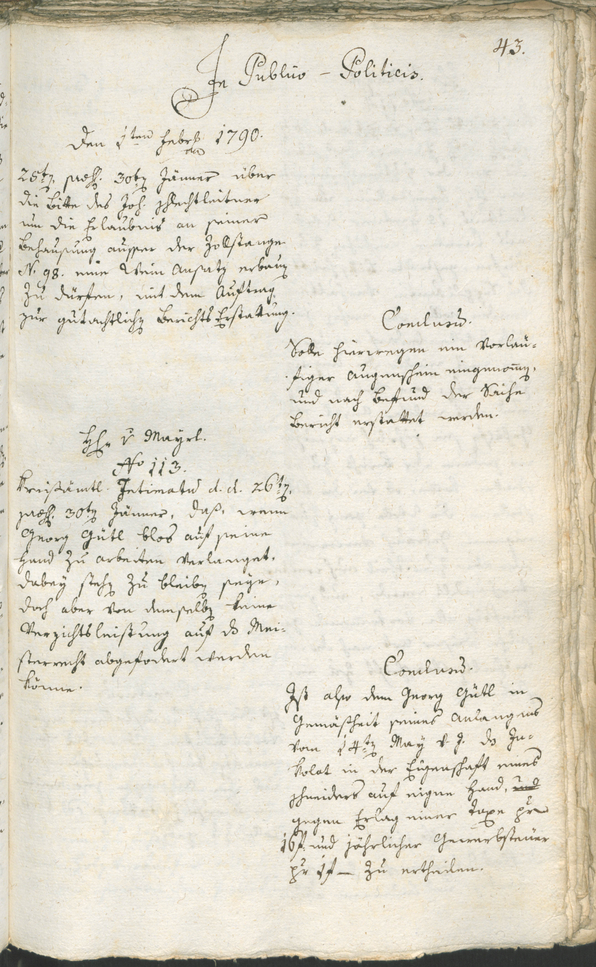 43.
In Publico - Politicis.
Den 1ten Febr. 1790.
28ty, praes. 30ty Jänner über
die Bitte des Joh. Schlechtleitner
um die Erlaubnis an seiner
Behausung ausser der Zollstange
No 98. eine Wein Ansatz erbauen
zu dürfen, mit dem Auftrag
zur gutächtlichen Berichts Erstattung.
Conclusum.
Solle hierwegen ein vorläu-
figer Augenschein eingenommen,
und nach Befund der Sache
Bericht erstattet werden.
H. v. Mayrl.
No 113.
Kreisämtl. Intimatum d. d. 26ty,
praes. 30ty Jänner, daß, wenn
Georg Gütl blos auf seine
Hand zu arbeiten verlanget,
dabey stehen zu bleiben seye,
doch aber von demselben keine
Verzichtsleistung auf das Mei-
sterrecht abgefodert werden
könne.
Conclusum.
Ist also dem Georg Gütl in
Gemäßheit seines Anlangens
vom 14ten May v. J. das In-
kolat in der Eigenschaft eines
Schneiders auf eigne Hand,
gegen Erlag einer Taxe pr
16 f und jährlicher Gewerbsteuer
pr 1 f — zu ertheilen.